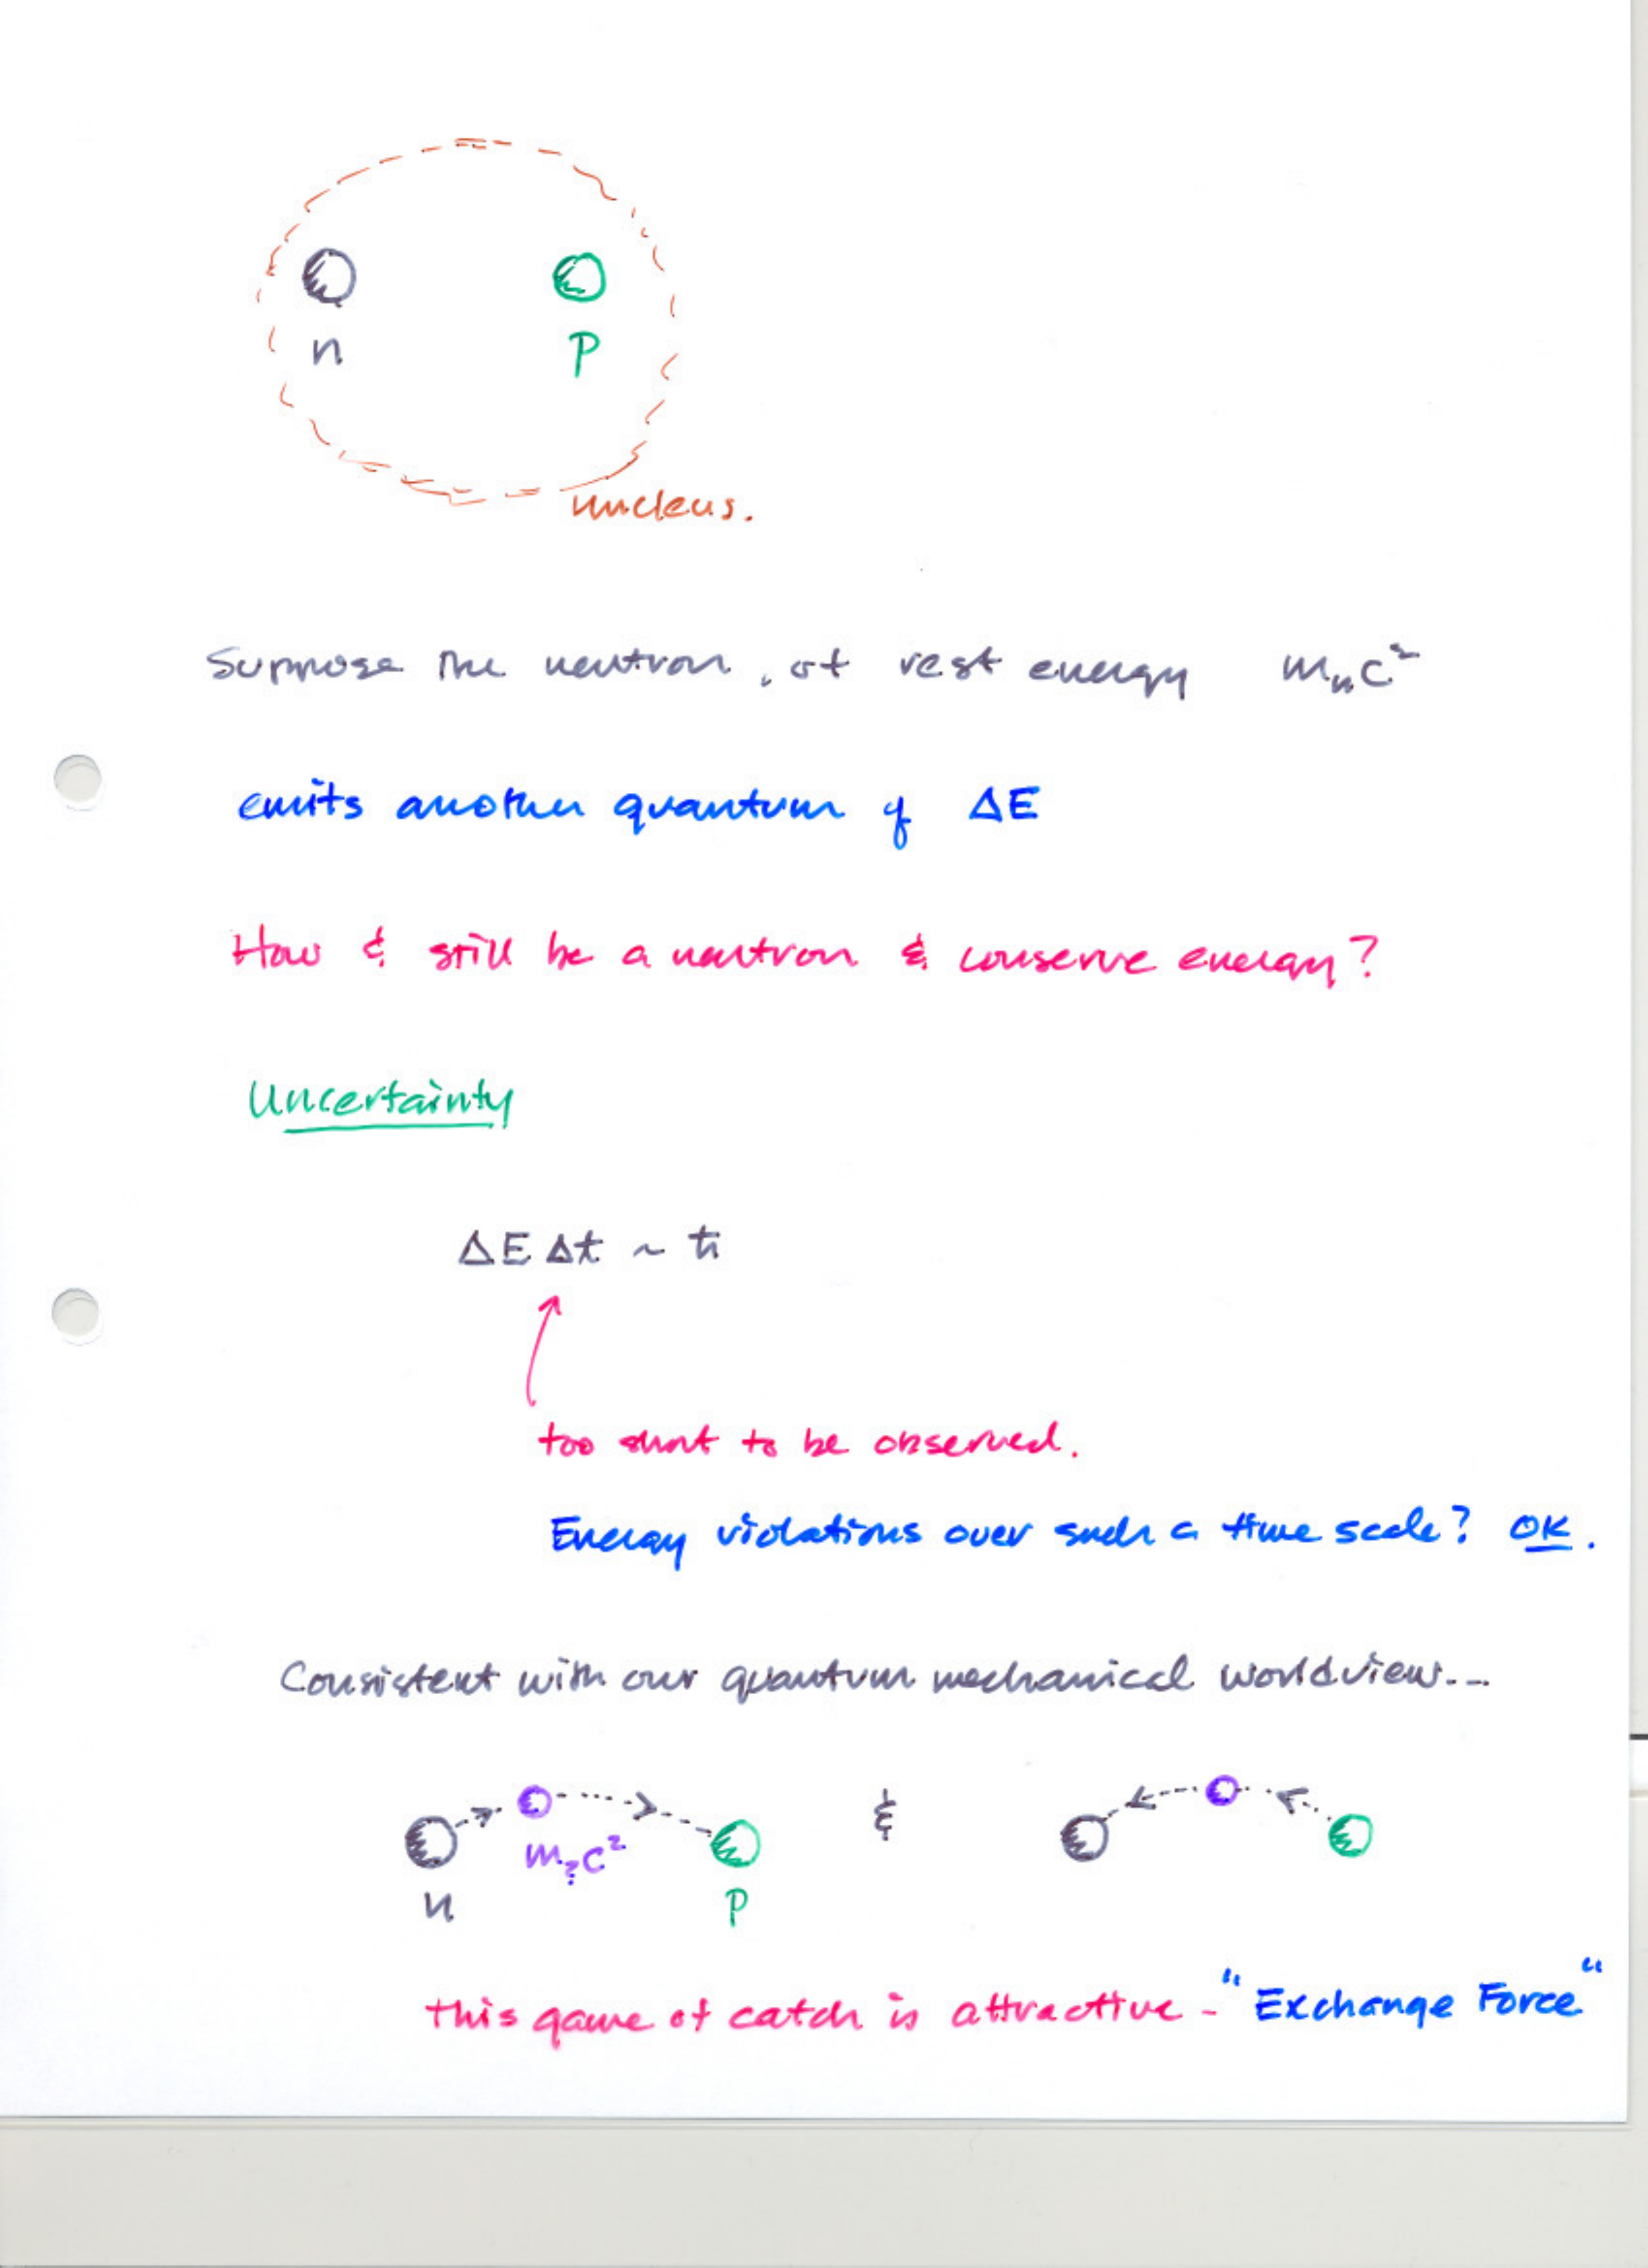 n P
nucleus.
Suppose the neutron, of rest energy mₙc²
emits another quantum of ΔE
How & still be a neutron & conserve energy?
Uncertainty
ΔE Δt ~ ħ
too short to be observed.
Energy violations over such a time scale? OK.
Consistent with our quantum mechanical worldview...
&
m?c²
n P
this game of catch is attractive - "Exchange Force"